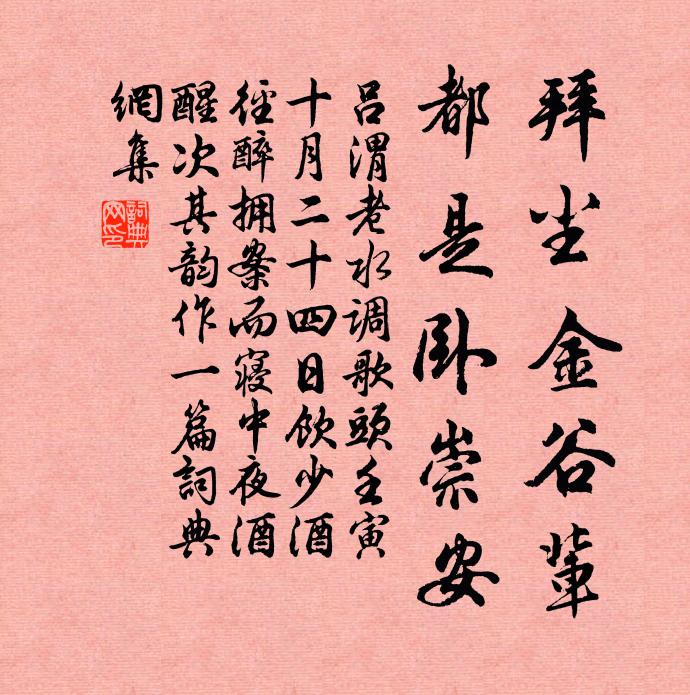 拜尘金谷輩
都是卧崇安
呂渭老水调歌頭壬寅
十月二十四日飲少酒
徑醉拥案而寢中夜酒
醒次其韵作一篇詞典
網集
詞典
网印